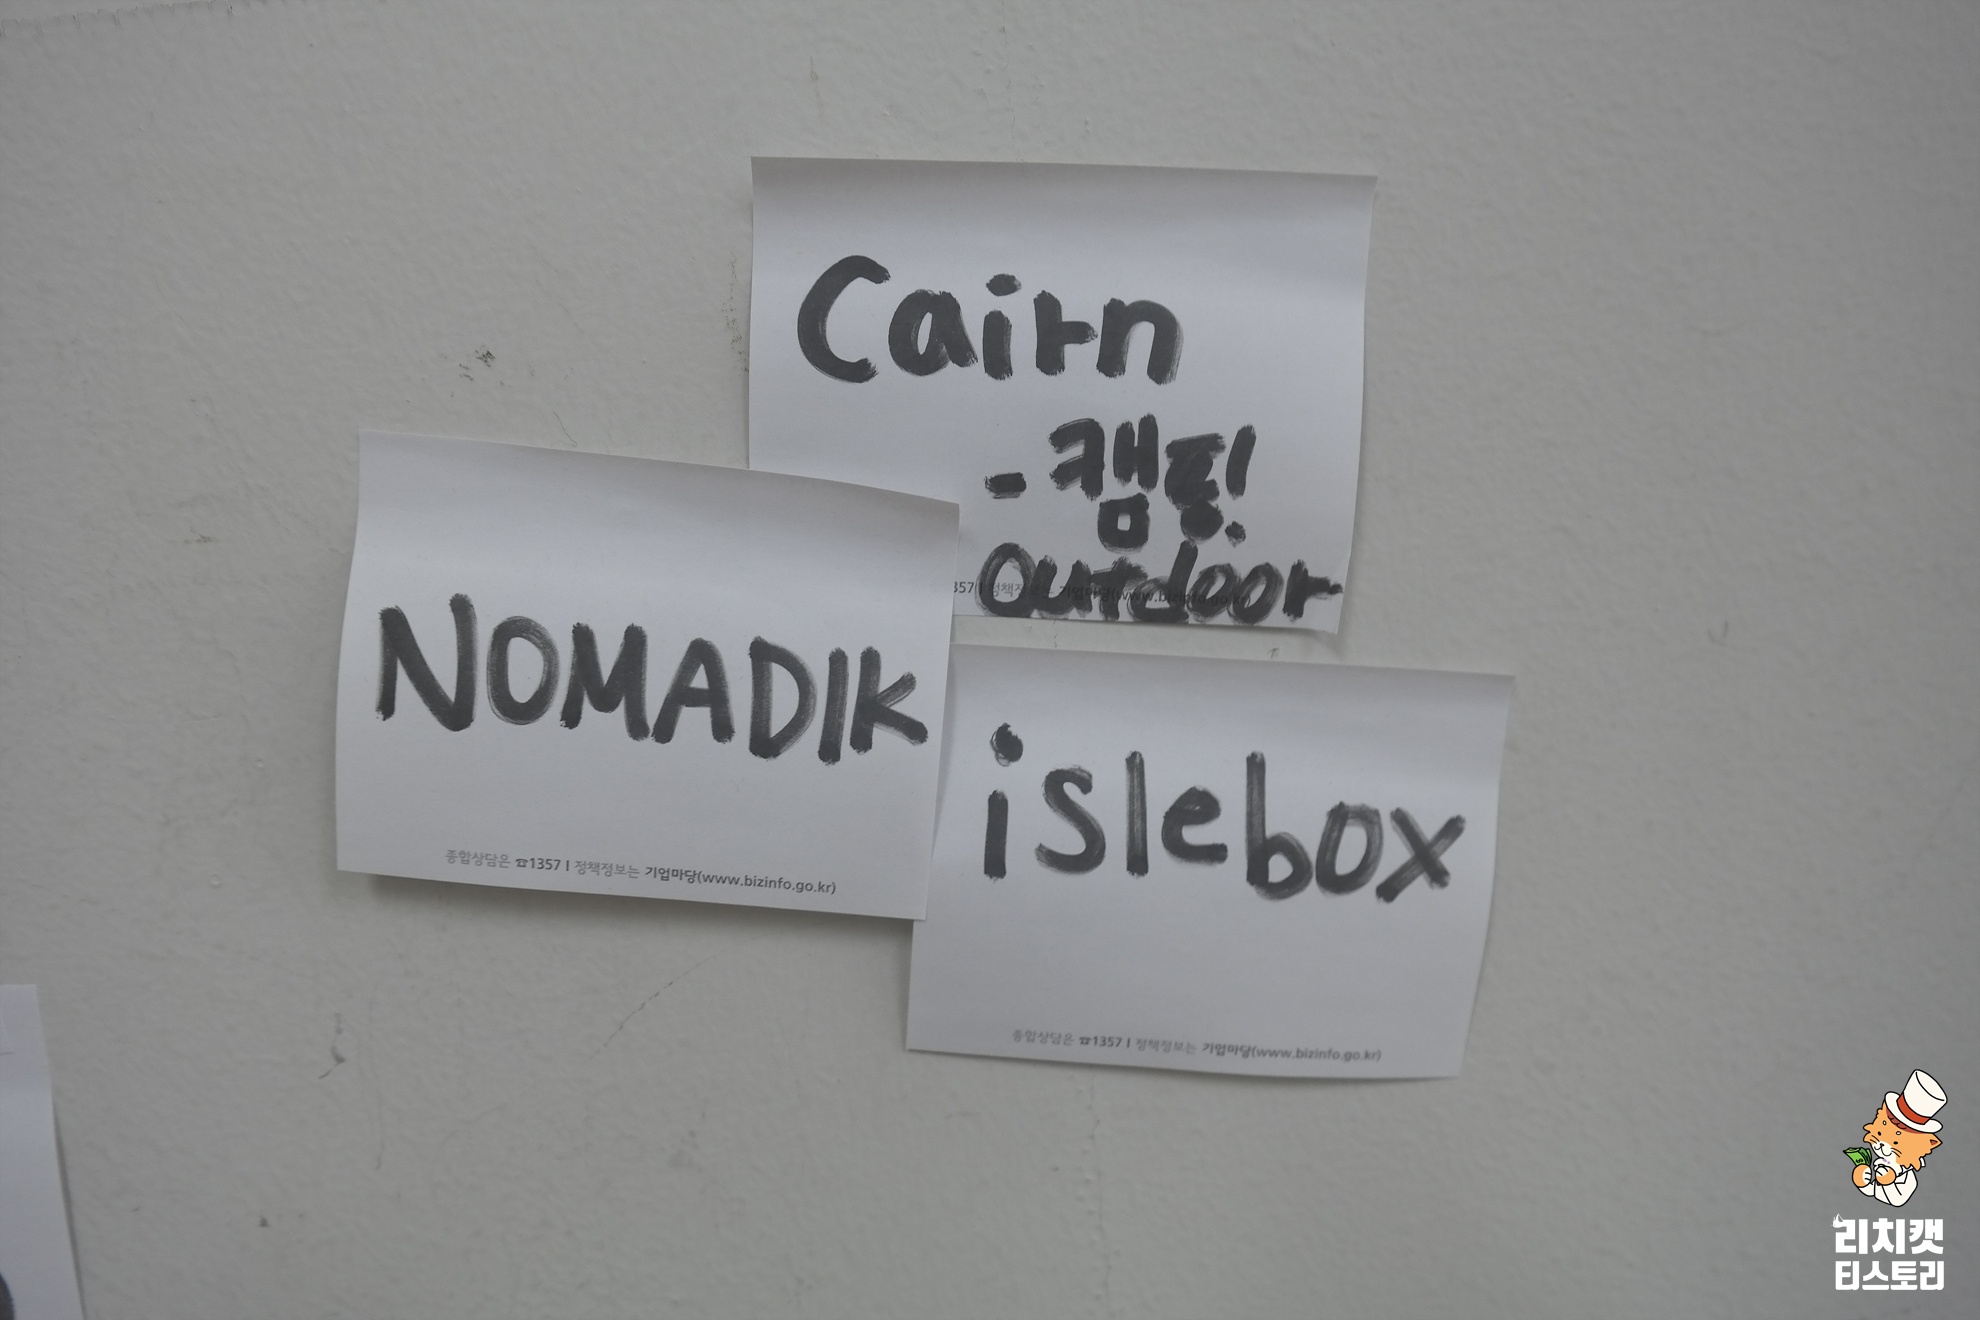 Cairn
- 캠핑!
Outdoor
357 | 정책정보는 기업마당(www.bizinfo.go.kr)
NOMADIK
종합상담은 ☎1357 | 정책정보는 기업마당(www.bizinfo.go.kr)
islebox
종합상담은 ☎1357 | 정책정보는 기업마당(www.bizinfo.go.kr)
리치캣
티스토리